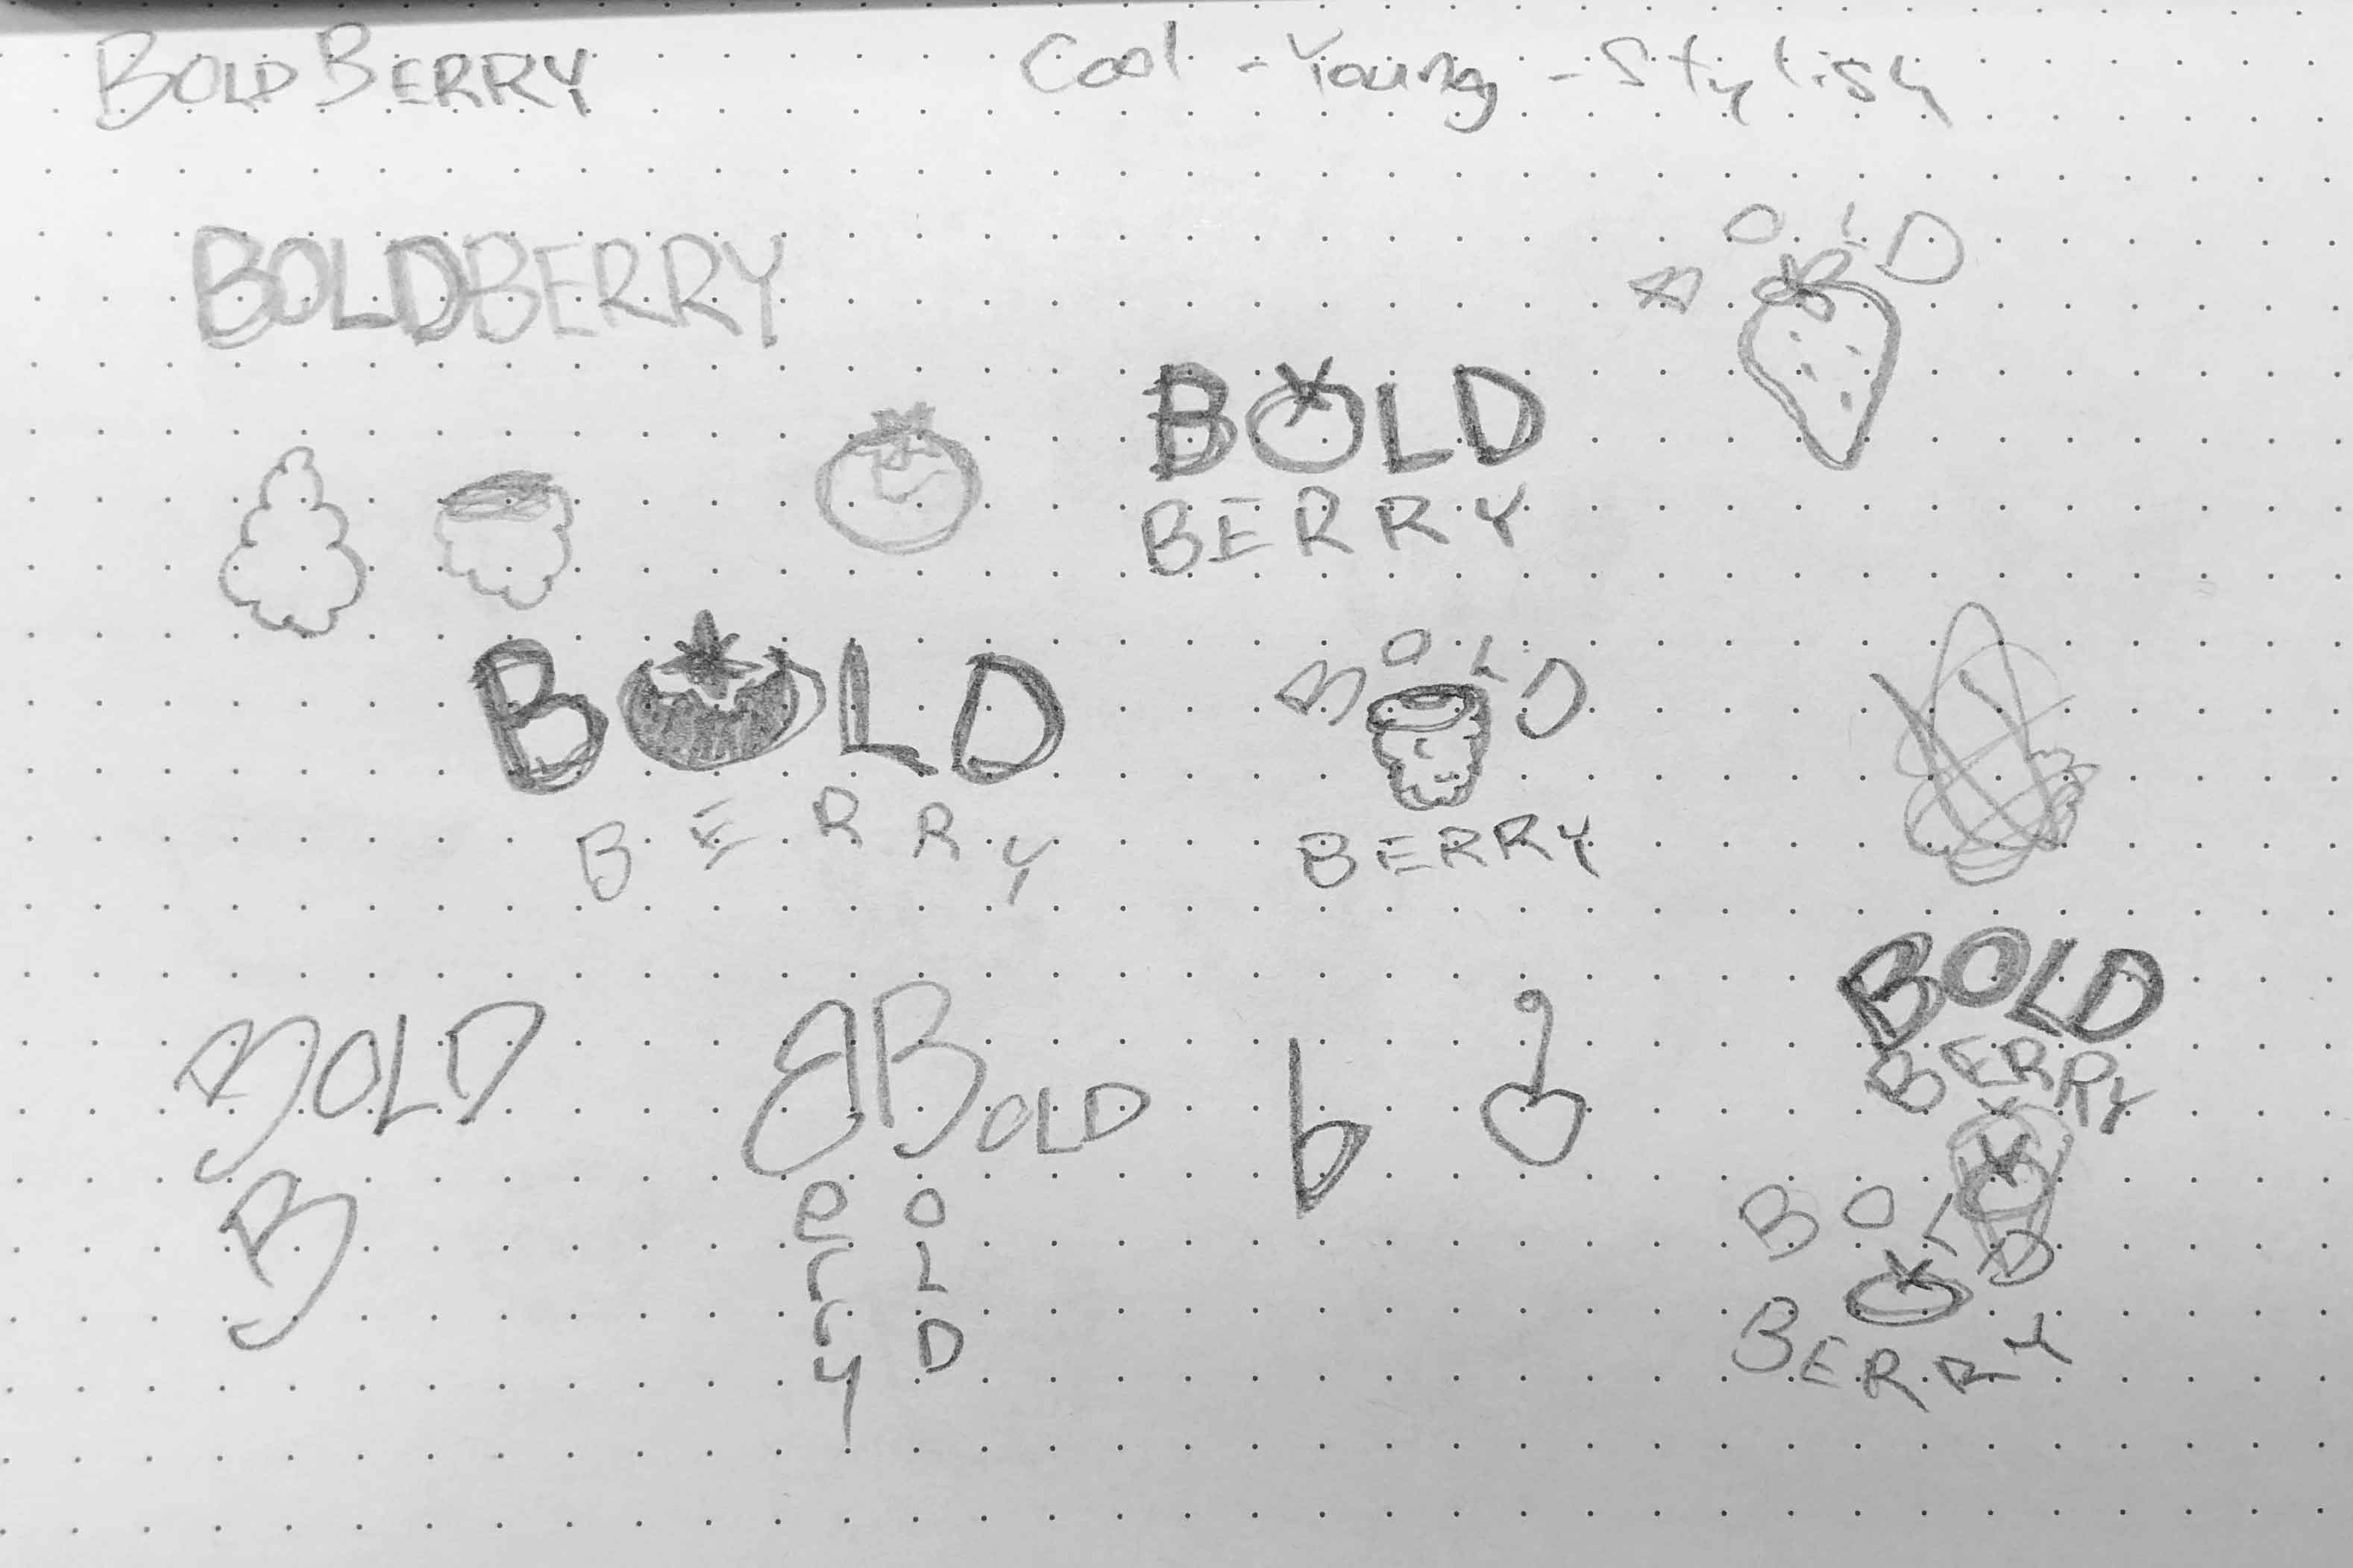 BOLDBERRY
Cool - Young - Stylish
BOLDBERRY
BOLD
BOLD
BERRY
BOLD
BERRY
BOLD
BERRY
BOLD
BERRY
BOLD
B
B BOLD
erry
OLD
b
BOLD
BERRY